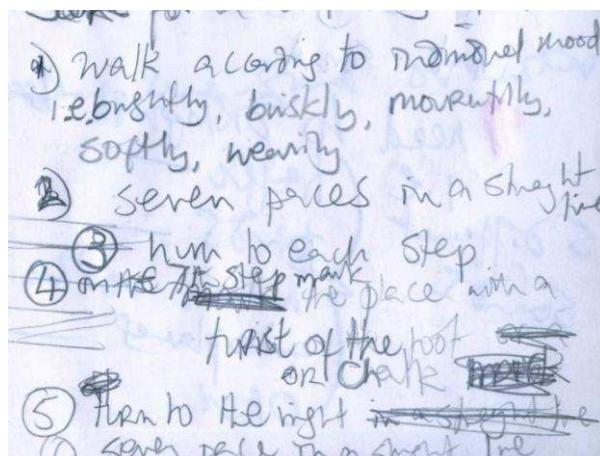 1) walk according to individual mood
i.e. brightly, briskly, mournfully,
softly, wearily
2) seven paces in a straight line
③ hum to each step
④ on the 7th step mark the place with a
twist of the foot
or chalk
⑤ turn to the right
seven pace in a straight line